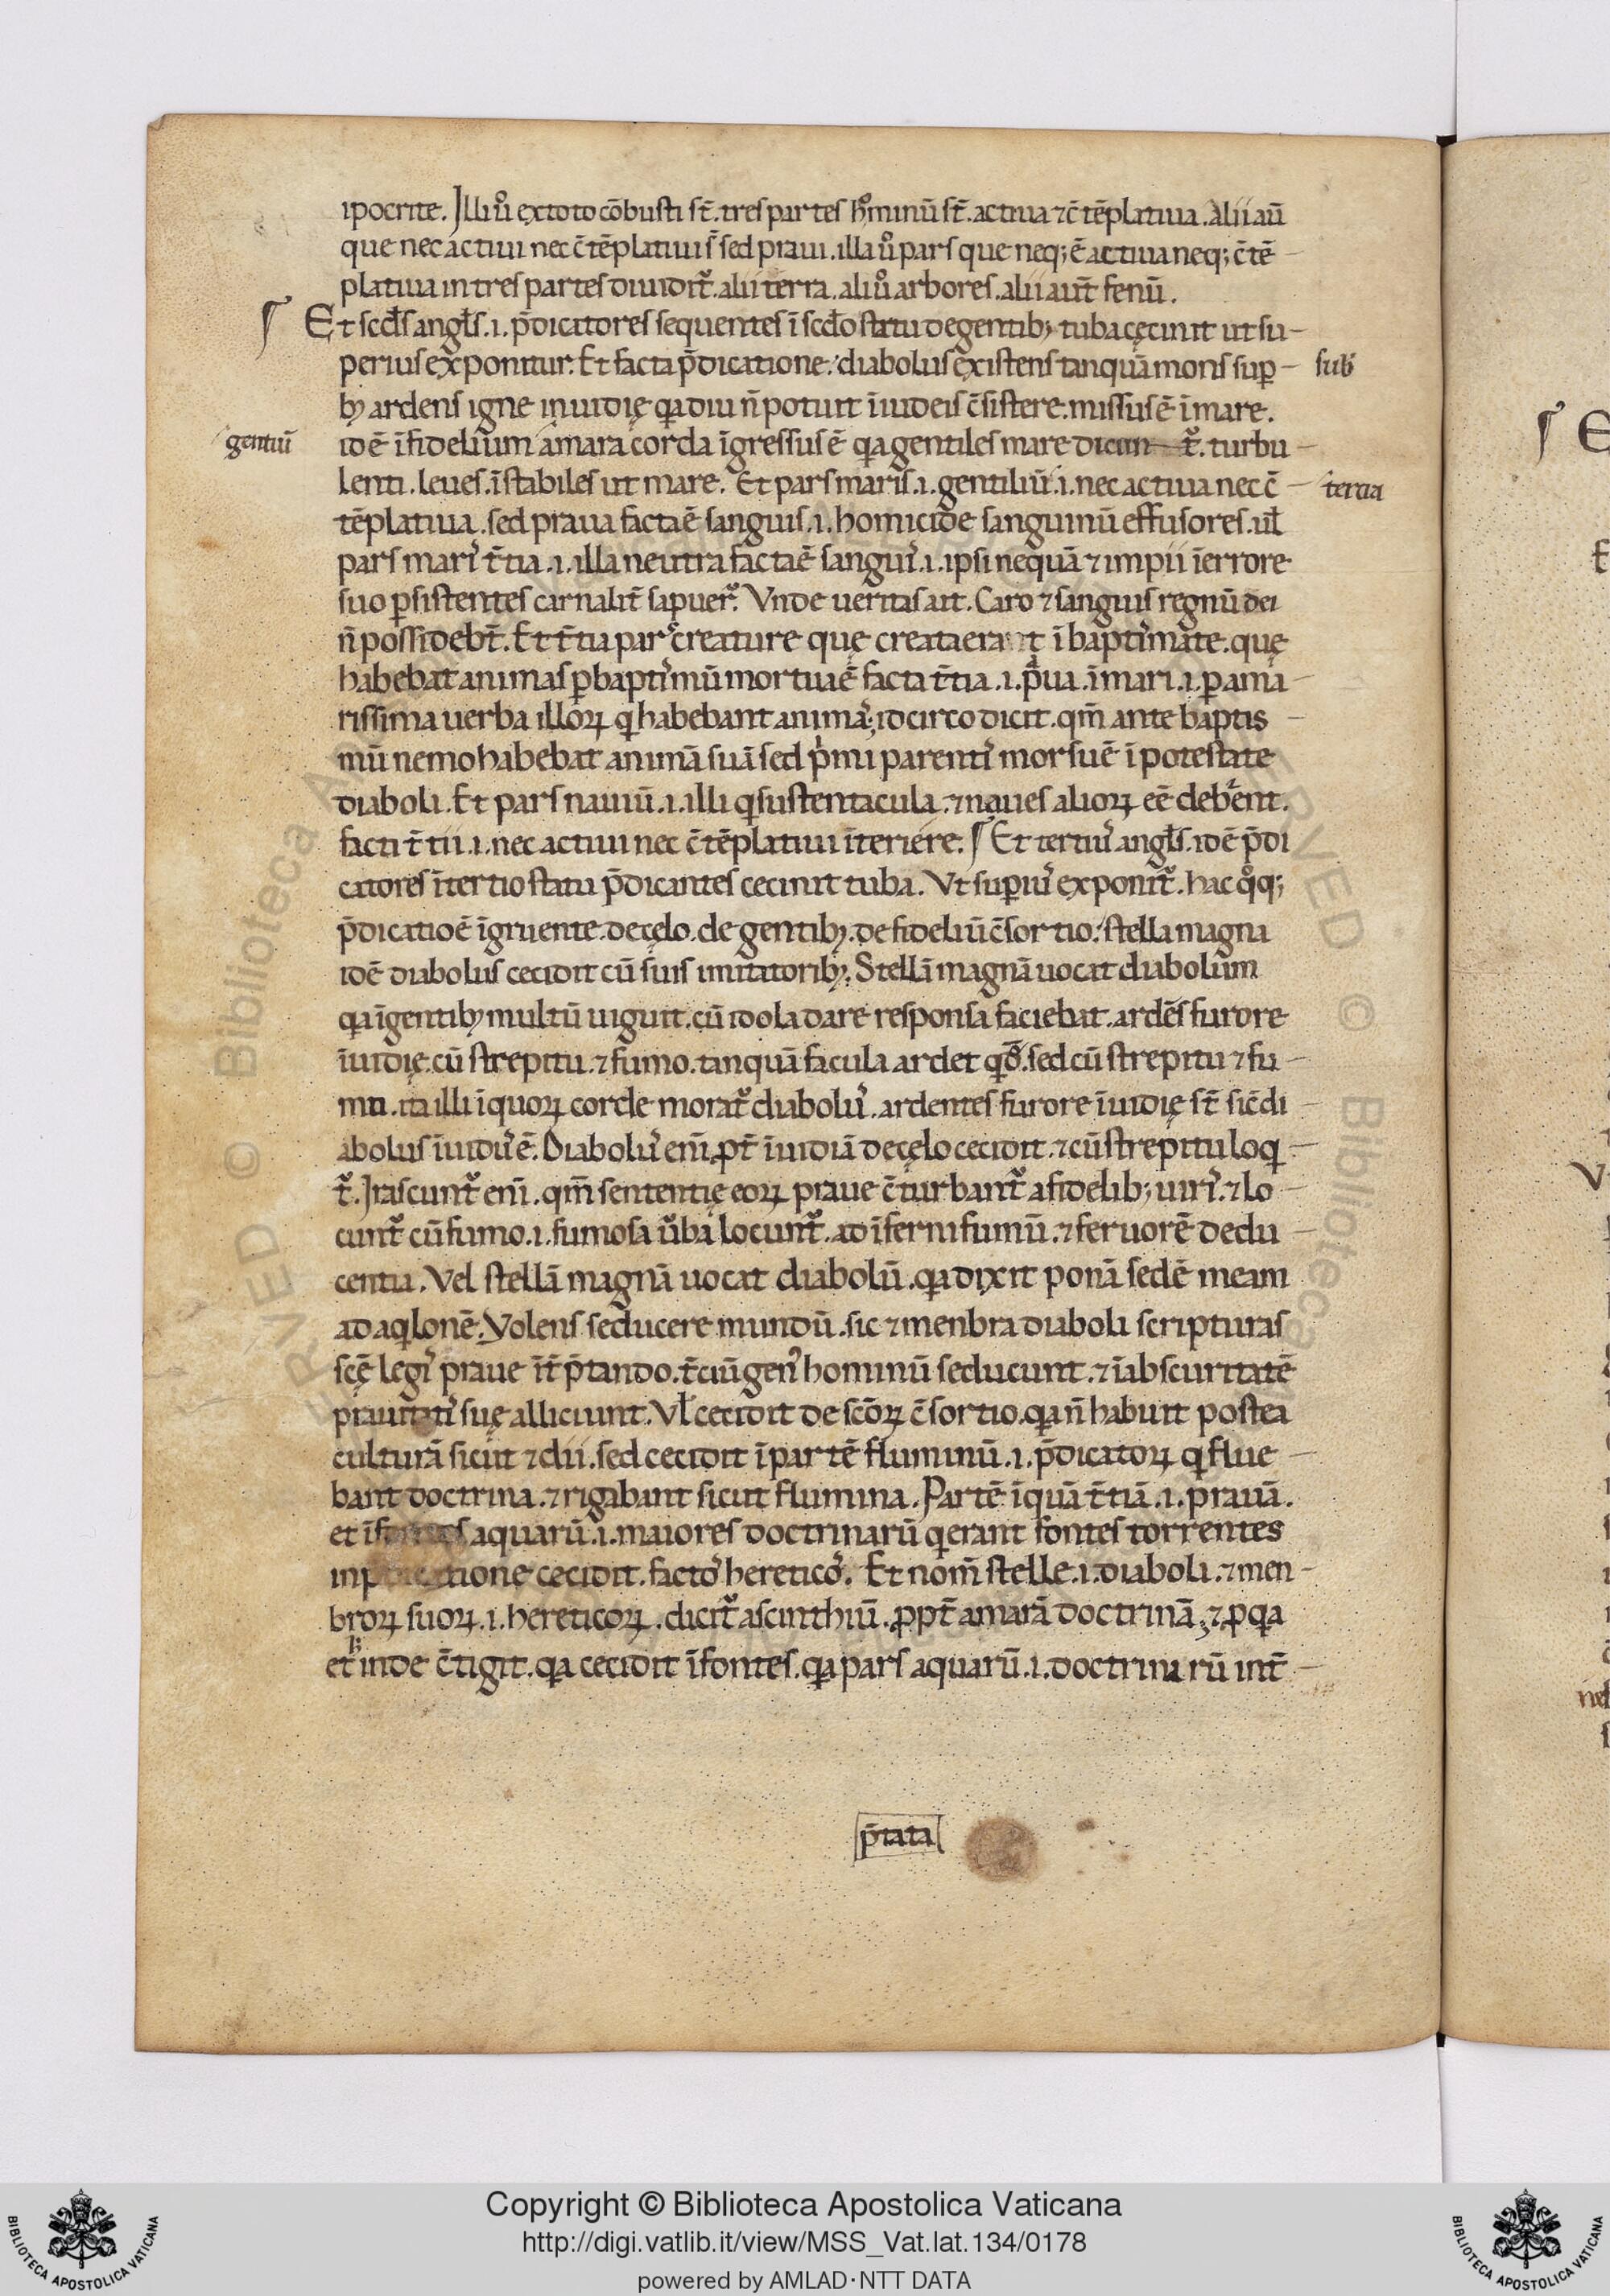 ipocrite. Illi u᷒o ex toto cōbusti st̄. tres partes ho᷒minū st̄. actiua ⁊ c̄tēplatiua. Alii aū
que nec actiui nec c̄tēplatiui s̄ sed praui. illa u᷒o pars que neq; ē actiua neq; c̄tē
platiua in tres partes diuidit᷒. alii terra. alii u᷒o arbores. alii aut̄ fenū.
¶ Et scđs angł̄s .i. p̄dicatores sequentes ī scđo statu de gentibꝫ tuba cęcinit ut su
perius exponitur. Et facta p̄dicatione: diabolus existens tanquā mons suꝑ
bꝫ ardens igne inuidię qa diu n̄ potuit ī iudeis c̄sistere. missus ē ī mare.
sub
gentiū
idē īfidelium amara corda īgressus ē qa gentiles mare dicun t᷒. turbu
lenti. leues. īstabiles ut mare. Et pars maris .i. gentiliū .i. nec actiua nec c̄
tercia
tēplatiua. sed praua facta ē sanguis .i. homicide sanguinū effusores. ul̄
pars mari᷒ t̄tia .i. illa neutra facta ē sangui᷒ .i. ipsi nequā ⁊ impii ī errore
suo ꝑsistentes carnalit̄ sapuer᷒. Vnde ueritas ait. Caro ⁊ sanguis regnū dei
n̄ possidebt̄. Et t̄tia pars creature que creata erant ī bapti᷒mate. quę
habebat animas ꝑ bapti᷒mū mortua ē facta t̄tia .i. p̄ua. ī mari .i. ꝑ ama
rissima uerba illoꝝ q habebant animā; idcirco dicit. qm̄ ante baptis
mū nemo habebat animā suā sed p᷒mi parenti᷒ morsu ē ī potestate
diaboli. Et pars nauiū .i. illi q sustentacula ⁊ naues alioꝝ eē deb᷒ent.
facti t̄tii .i. nec actiui nec c̄tēplatiui īteriere. ¶ Et tertiu᷒ angł̄s. idē p̄di
catores ī tertio statu p̄dicantes cecinit tuba. Vt suꝑiu᷒ exponit᷒. hac qoq;
p̄dicatioē īgruente. de cęlo. de gentibꝫ. de fideliū c̄sortio: stella magna
idē diabolus cecidit cū suis imitatoribꝫ. Stellā magnā uocat diabolum
qa ī gentibꝫ multū uiguit. cū idola dare responsa faciebat. ardēs furore
īuidię. cū strepitu. ⁊ fumo. tanquā facula ardet qđ. sed cū strepitu ⁊ fu
mo. ita illi ī quoꝝ corde morat᷒ diabolu᷒. ardentes furore īuidię st̄ sic̄ di
abolus īuidu᷒ ē. Diabolu᷒ enī ꝓpt̄ īuidiā de cęlo cecidit. ⁊ cū strepitu loq
t᷒. Irascunt᷒ enī. qm̄ sententię eoꝝ praue c̄turbant᷒ a fidelib; uiri᷒. ⁊ lo
cunt᷒ cū fumo .i. fumosa u᷒ba locunt᷒. ad īferni fumū. ⁊ feruorē dedu
centia. Vel stellā magnā uocat diabolū. qa dixit ponā sedē meam
ad aqlonē. Volens seducere mundū. sic ⁊ menbra diaboli scripturas
scę̄ legi᷒ praue īt̄p̄tando. t̄ciū gen᷒ hominū seducunt. ⁊ ī abscuritatē
prauitati᷒ suę alliciunt. Vl̄ cecidit de scōꝝ c̄sortio. qa n̄ habuit postea
culturā sicut ⁊ dii. sed cecidit ī partē fluminū .i. p̄dicatoꝝ q flue
bant doctrina. ⁊ rigabant sicut flumina. Partē īquā t̄tiā .i. prauā.
et ī fontes aquarū .i. maiores doctrinarū q erant fontes torrentes
in p̄dicatione cecidit. facto᷒ heretico᷒. Et nom̄ stelle .i. diaboli. ⁊ men
broꝝ suoꝝ .i. hereticoꝝ. dicit᷒ ascinthiū. ꝓpt̄ amarā doctrinā. ⁊ ꝓ qa
et inde c̄tigit. qa cecidit ī fontes. qa pars aquarū .i. doctrina rū int̄
p̄tata
Copyright © Biblioteca Apostolica Vaticana
http://digi.vatlib.it/view/MSS_Vat.lat.134/0178
powered by AMLAD·NTT DATA